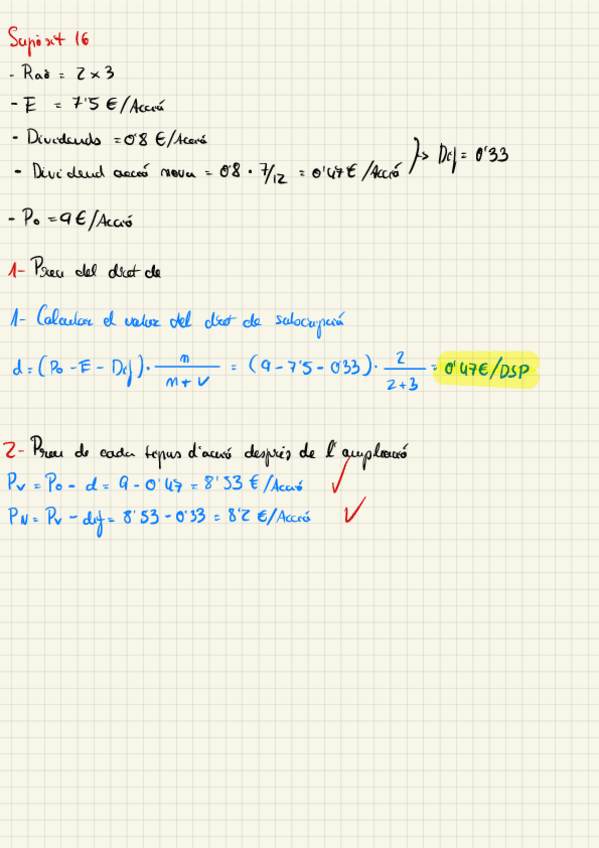 Supòsit 16
- Rad = 2 x 3
- E = 7'5 €/Acció
- Dividends = 0'8 €/Acció
- Dividend acció nova = 0'8 · 7/12 = 0'47€/Acció } -> Dif = 0'33
- Po = 9€/Acció
1- Preu del dret de
1- Calcular el valor del dret de subscripció
d = (Po - E - Dif) · n / (n + v) = (9 - 7'5 - 0'33) · 2 / (2+3) = 0'47€/DSP
2- Preu de cada tipus d'acció després de l'ampliació
Pv = Po - d = 9 - 0'47 = 8'53 €/Acció ✓
PN = Pv - dif = 8'53 - 0'33 = 8'2 €/Acció ✓